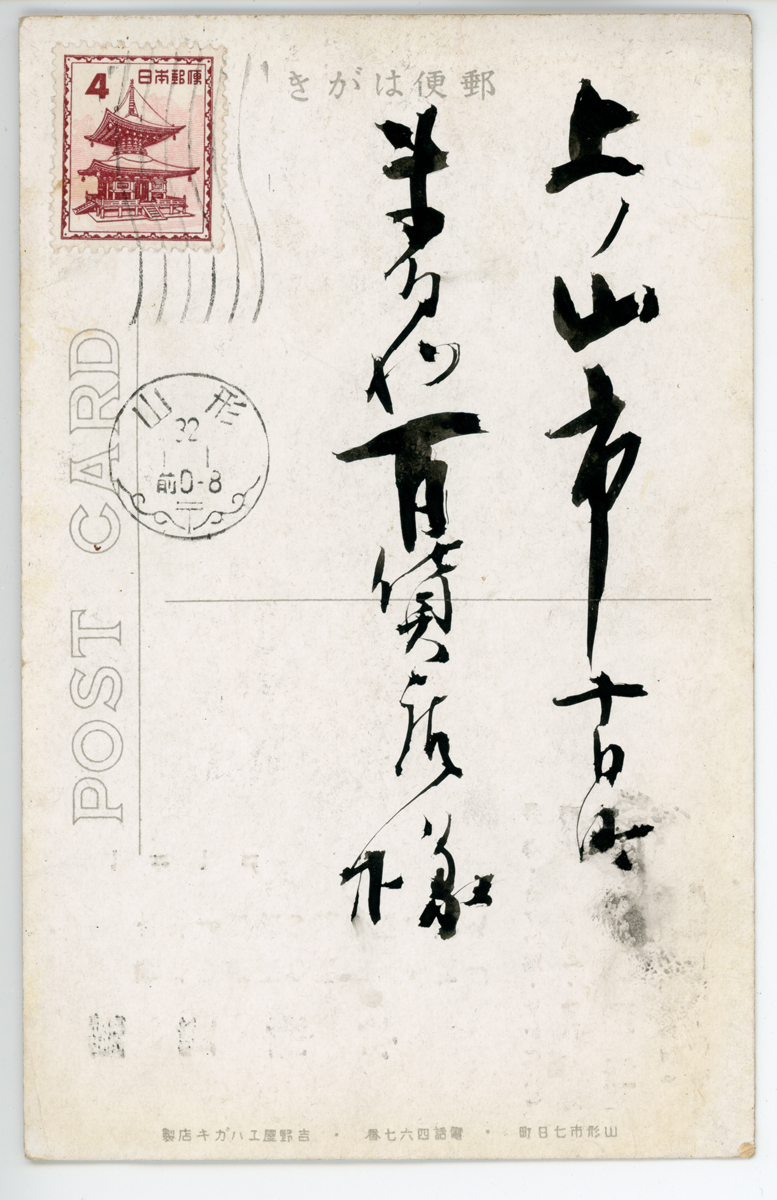 郵便はがき
4 日本郵便
上ノ山市十日町
百貨店様
山形
32
1 1
前0-8
POST CARD
山形市七日町・電話四六七番・吉野屋エハガキ店製